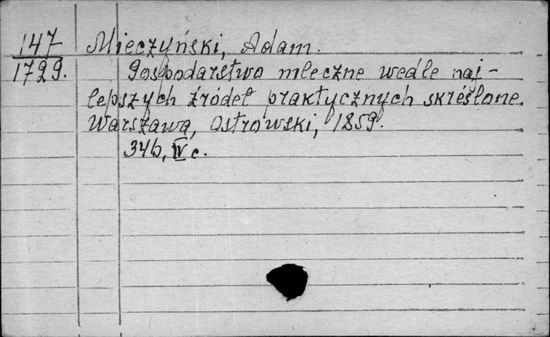 147 Mieczyński, Adam.
1729. Gospodarstwo mleczne wedle naj-
lepszych źródeł praktycznych skréślone.
Warszawa, Ostrowski, 1859.
346, IV c.